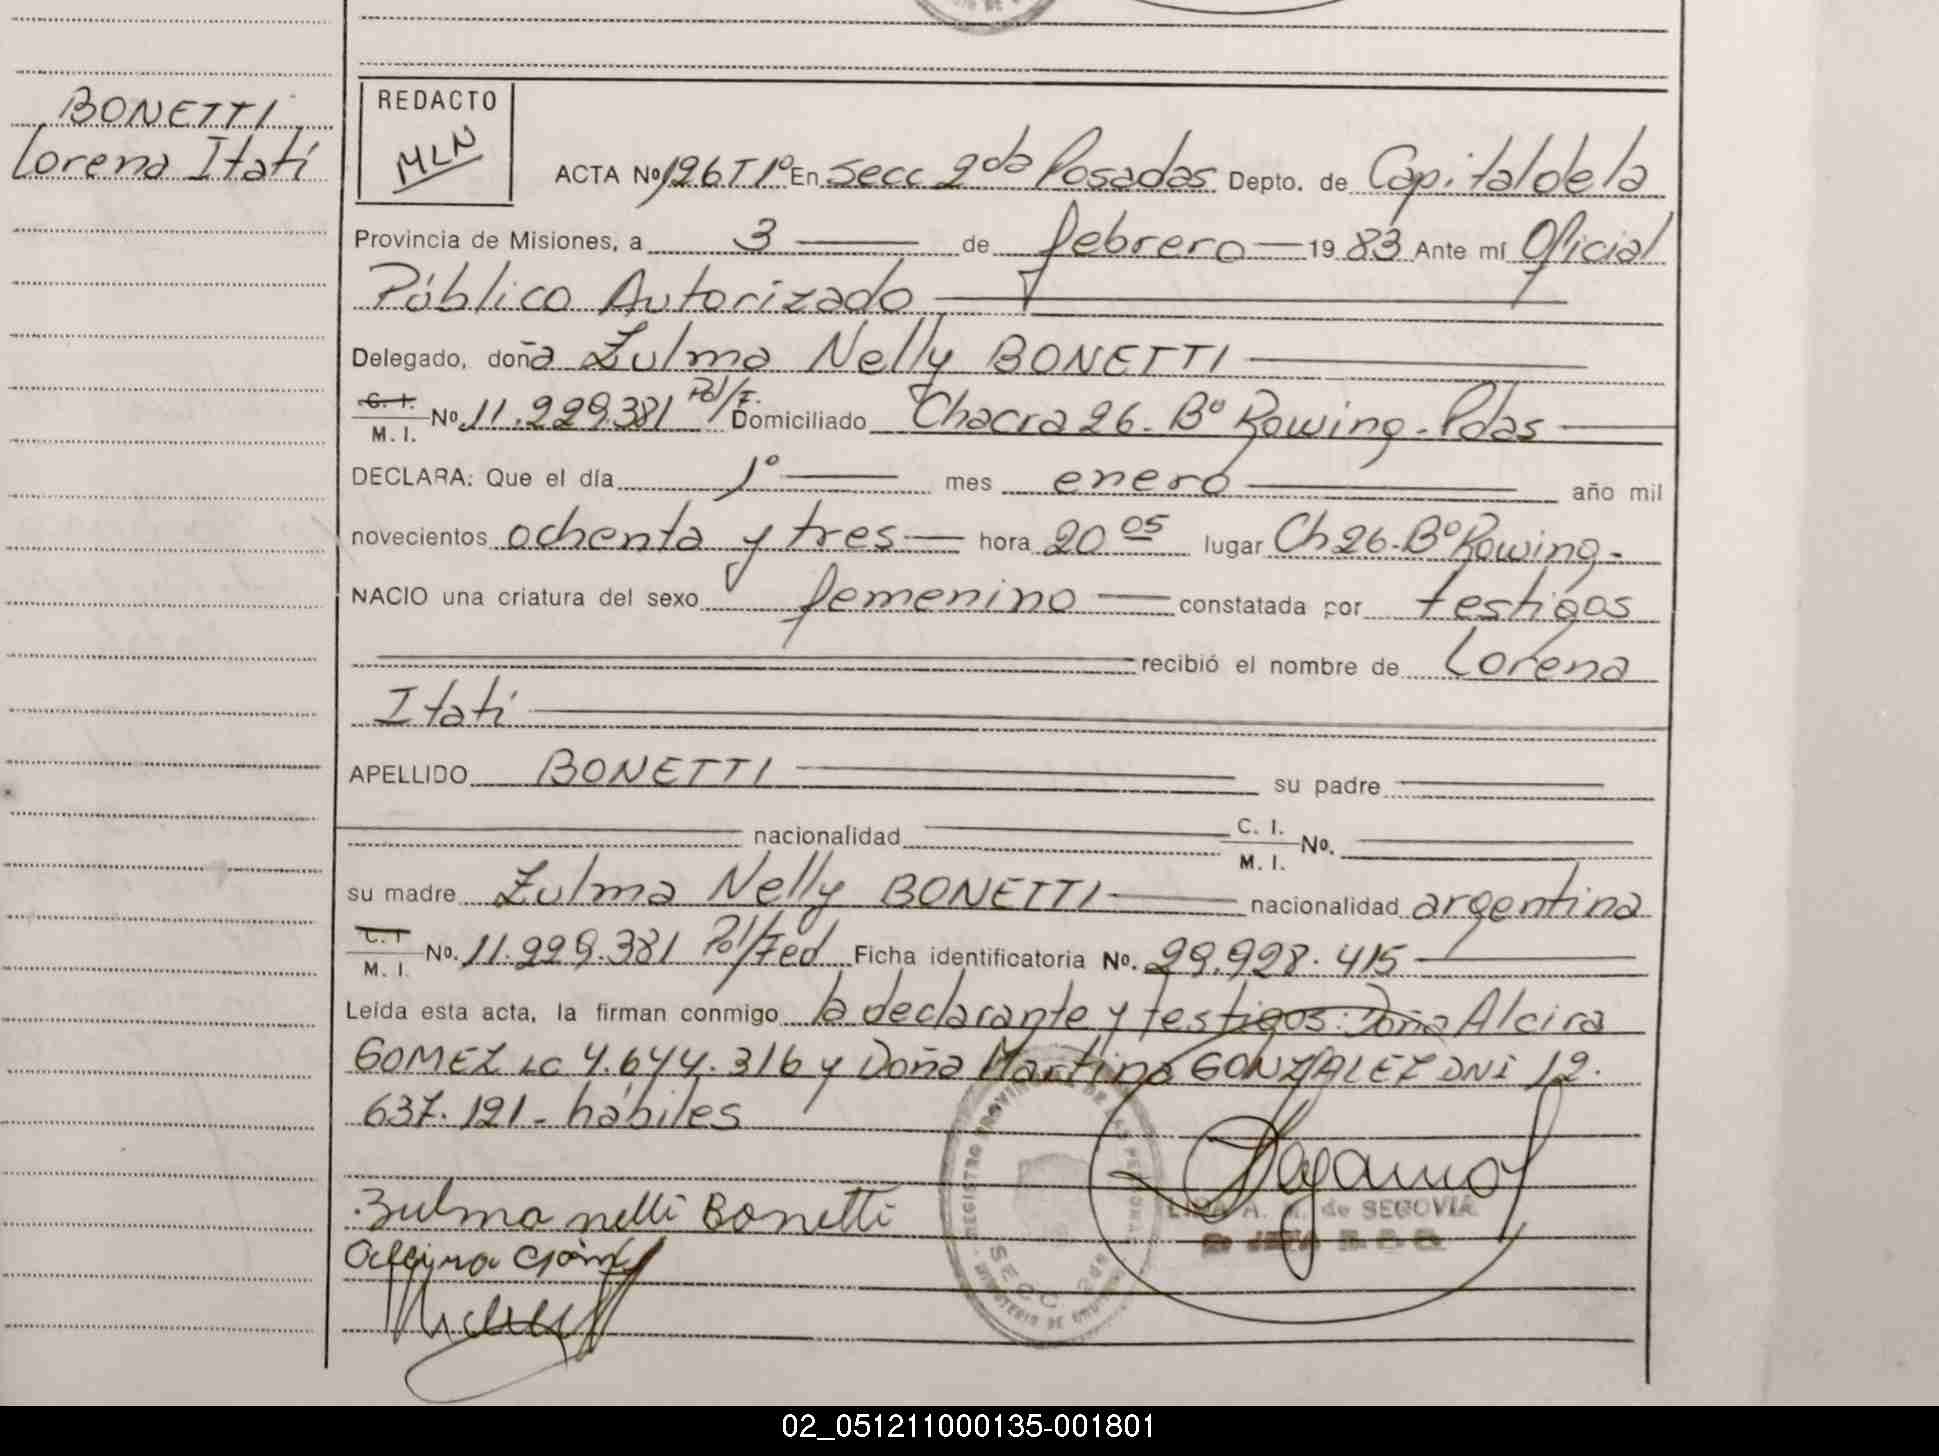 BONETTI
Lorena Itatí
REDACTO
MLN
ACTA Nº 196 T1º En Secc 2da Posadas Depto. de Capital de la
Provincia de Misiones, a 3 de febrero 1983 Ante mí Oficial
Público Autorizado
Delegado, doña Zulma Nelly BONETTI
C. I. M. I. Nº 11.229.381 Pol/F. Domiciliado Chacra 26. Bº Rowing - Pdas
DECLARA: Que el día 1º mes enero año mil
novecientos ochenta y tres hora 20 05 lugar Ch 26. Bº Rowing -
NACIO una criatura del sexo femenino constatada por testigos
recibió el nombre de Lorena
Itatí
APELLIDO BONETTI su padre
nacionalidad C. I. M. I. No.
su madre Zulma Nelly BONETTI nacionalidad argentina
C. I. M. I. No. 11.229.381 Pol/Fed Ficha identificatoria No. 29.928.415
Leída esta acta, la firman conmigo la declarante y testigos: Doña Alcira
GOMEZ LC 4.644.316 y Doña Martina GONZALEZ DNI 12.
637.121 - hábiles
Zulma nelli Bonetti
REGISTRO PROVINCIAL DE LAS PERSONAS
SECC 2da
MINISTERIO DE
de SEGOVIA
02_051211000135-001801